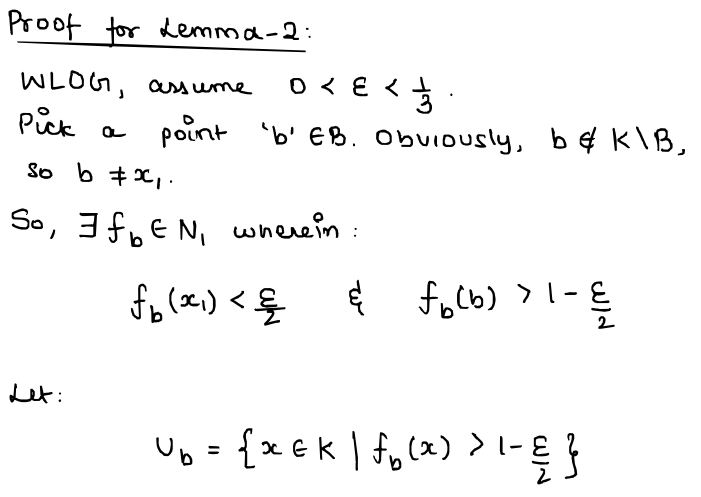 Proof for Lemma-2:
WLOG, assume 0 < ε < 1/3.
Pick a point 'b' ∈ B. Obviously, b ∉ K\B,
so b ≠ x₁.
So, ∃ f_b ∈ N₁ wherein:
f_b(x₁) < ε/2 & f_b(b) > 1 - ε/2
Let:
U_b = {x ∈ K | f_b(x) > 1 - ε/2}